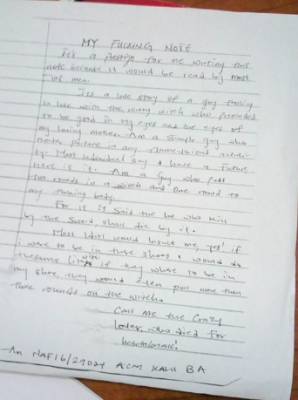 MY FUCKING NOTE
It's a prestige for me writing this
note because it would be read by most
of men.
It's a love story of a guy falling
in love with the wrong witch who pretended
to be good in my eyes and the eyes of
my loving mother. Am a simple guy who
in any
Most individual say I have a future
Here it is. Am a guy who felt
two rounds in a witch and one round to
my body.
For it is said the he who kill
by the sword shall die by it.
Most would yes! if
I were to be in those shoes I would do
the same if they where to be in
my shoe they would even pull more than
three rounds on the witch.
Call me the crazy
lover who died for
heartbreak!
NAF16/29024 ACM KALU BA